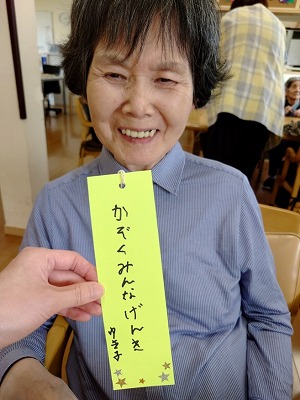 かぞくみんなげんき
ゆき子